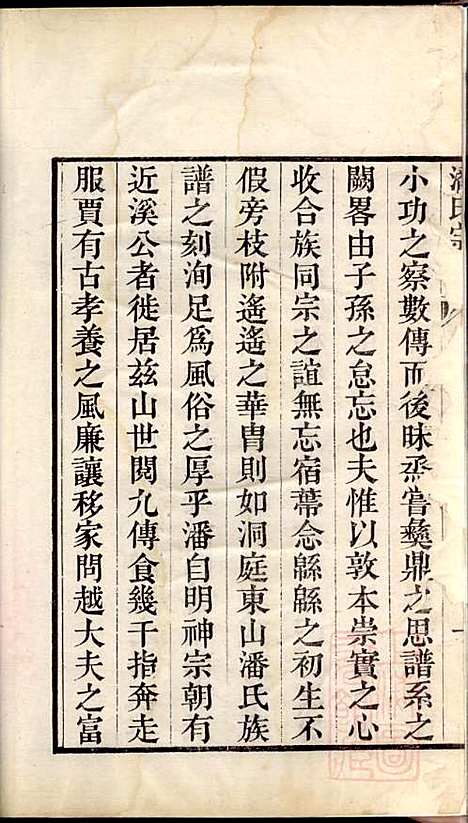 潘氏宗
小功之察數傳而後昧烝嘗彝鼎之思譜系之
闕畧由子孫之怠忘也夫惟以敦本崇實之心
收合族同宗之誼無忘宿草念緜緜之初生不
假旁枝附遙遙之華胄則如洞庭東山潘氏族
譜之刻洵足爲風俗之厚乎潘自明神宗朝有
近溪公者徙居茲山世閱九傳食幾千指奔走
服賈有古孝養之風廉讓移家問越大夫之富